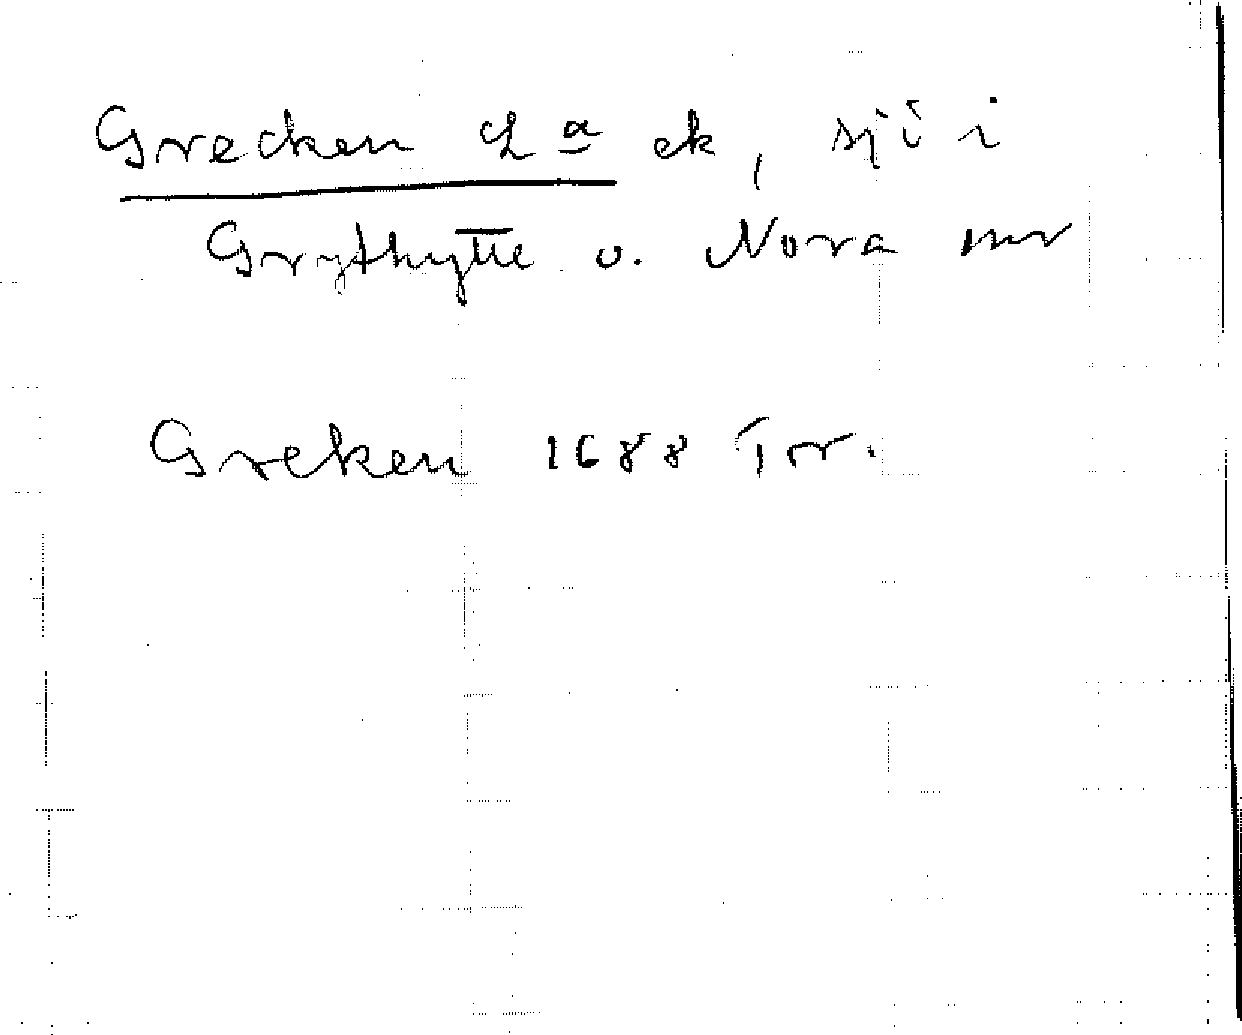 Grecken L a ek, sjö i
Grythytte o. Nora snr
Greken 1688